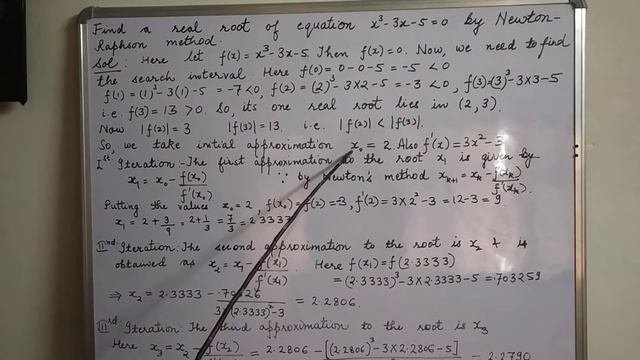 Find a real root of equation x³-3x-5=0 by Newton-
Raphson method.
Sol: Here let f(x)=x³-3x-5. Then f(x)=0. Now, we need to find
the search interval. Here f(0)=0-0-5=-5<0
f(1)=(1)³-3(1)-5=-7<0, f(2)=(2)³-3×2-5=-3<0, f(3)=(3)³-3×3-5
i.e. f(3)=13>0. So, its one real root lies in (2,3).
Now |f(2)|=3 |f(3)|=13. i.e. |f(2)|<|f(3)|.
So, we take initial approximation x₀=2. Also f'(x)=3x²-3
Ist Iteration:-The first approximation to the root x₁ is given by
x₁=x₀-f(x₀)/f'(x₀) ∵ by Newton's method xₖ₊₁=xₖ-f(xₖ)/f'(xₖ)
Putting the values x₀=2, f(x₀)=f(2)=-3, f'(2)=3×2²-3=12-3=9
x₁=2+3/9=2+1/3=7/3=2.3333
IInd Iteration: The second approximation to the root is x₂ & is
obtained as x₂=x₁-f(x₁)/f'(x₁) Here f(x₁)=f(2.3333)
=(2.3333)³-3×2.3333-5=.703259
⇒x₂=2.3333- /3(2.3333)²-3 =2.2806.
Iteration: The third approximation to the root is x₃
Here x₃=x₂ f(x₂) =2.2806-[(2.2806)³-3×2.2806-5] =2.2790